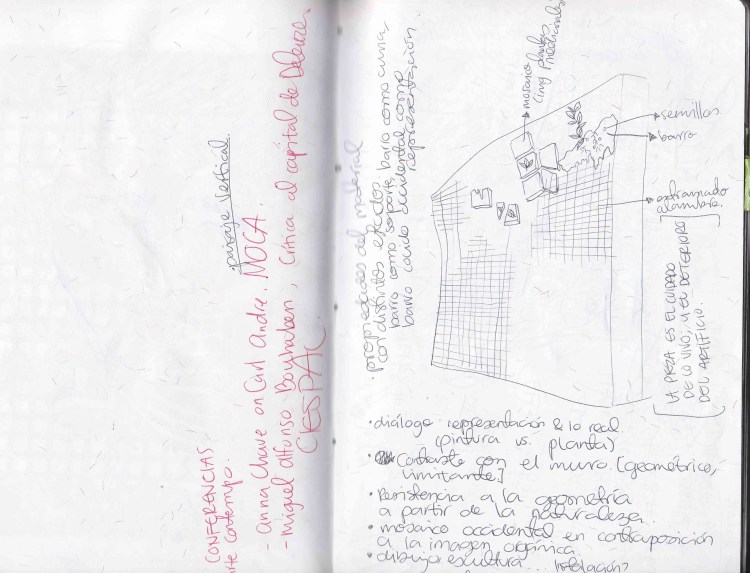 CONFERENCIAS
arte contempo.
- Anna Chave on Carl Andre. MOCA.
- Miguel Alfonso Bouhaben, Crítica al capital de Deleuze.
CIESPAL
.paisaje vertical.
• propiedades del material
con distintos efectos
barro como soporte, barro como cuna,
barro cocido occidental como
representación.
mosaico
(ing plantas
medicinales
semillas.
barro
entramado
alambre.
[LA PIEZA ES EL CUIDADO
DE LO VIVO, Y EL DETERIORO
DEL ARTIFICIO.]
• diálogo representación & lo real
(pintura vs. planta)
• Contraste con el muro. [geométrico,
limitante.]
• Resistencia a la geometría
a partir de la naturaleza.
• mosaico occidental en contraposición
a la imagen orgánica
• dibujo escultura... instalación?